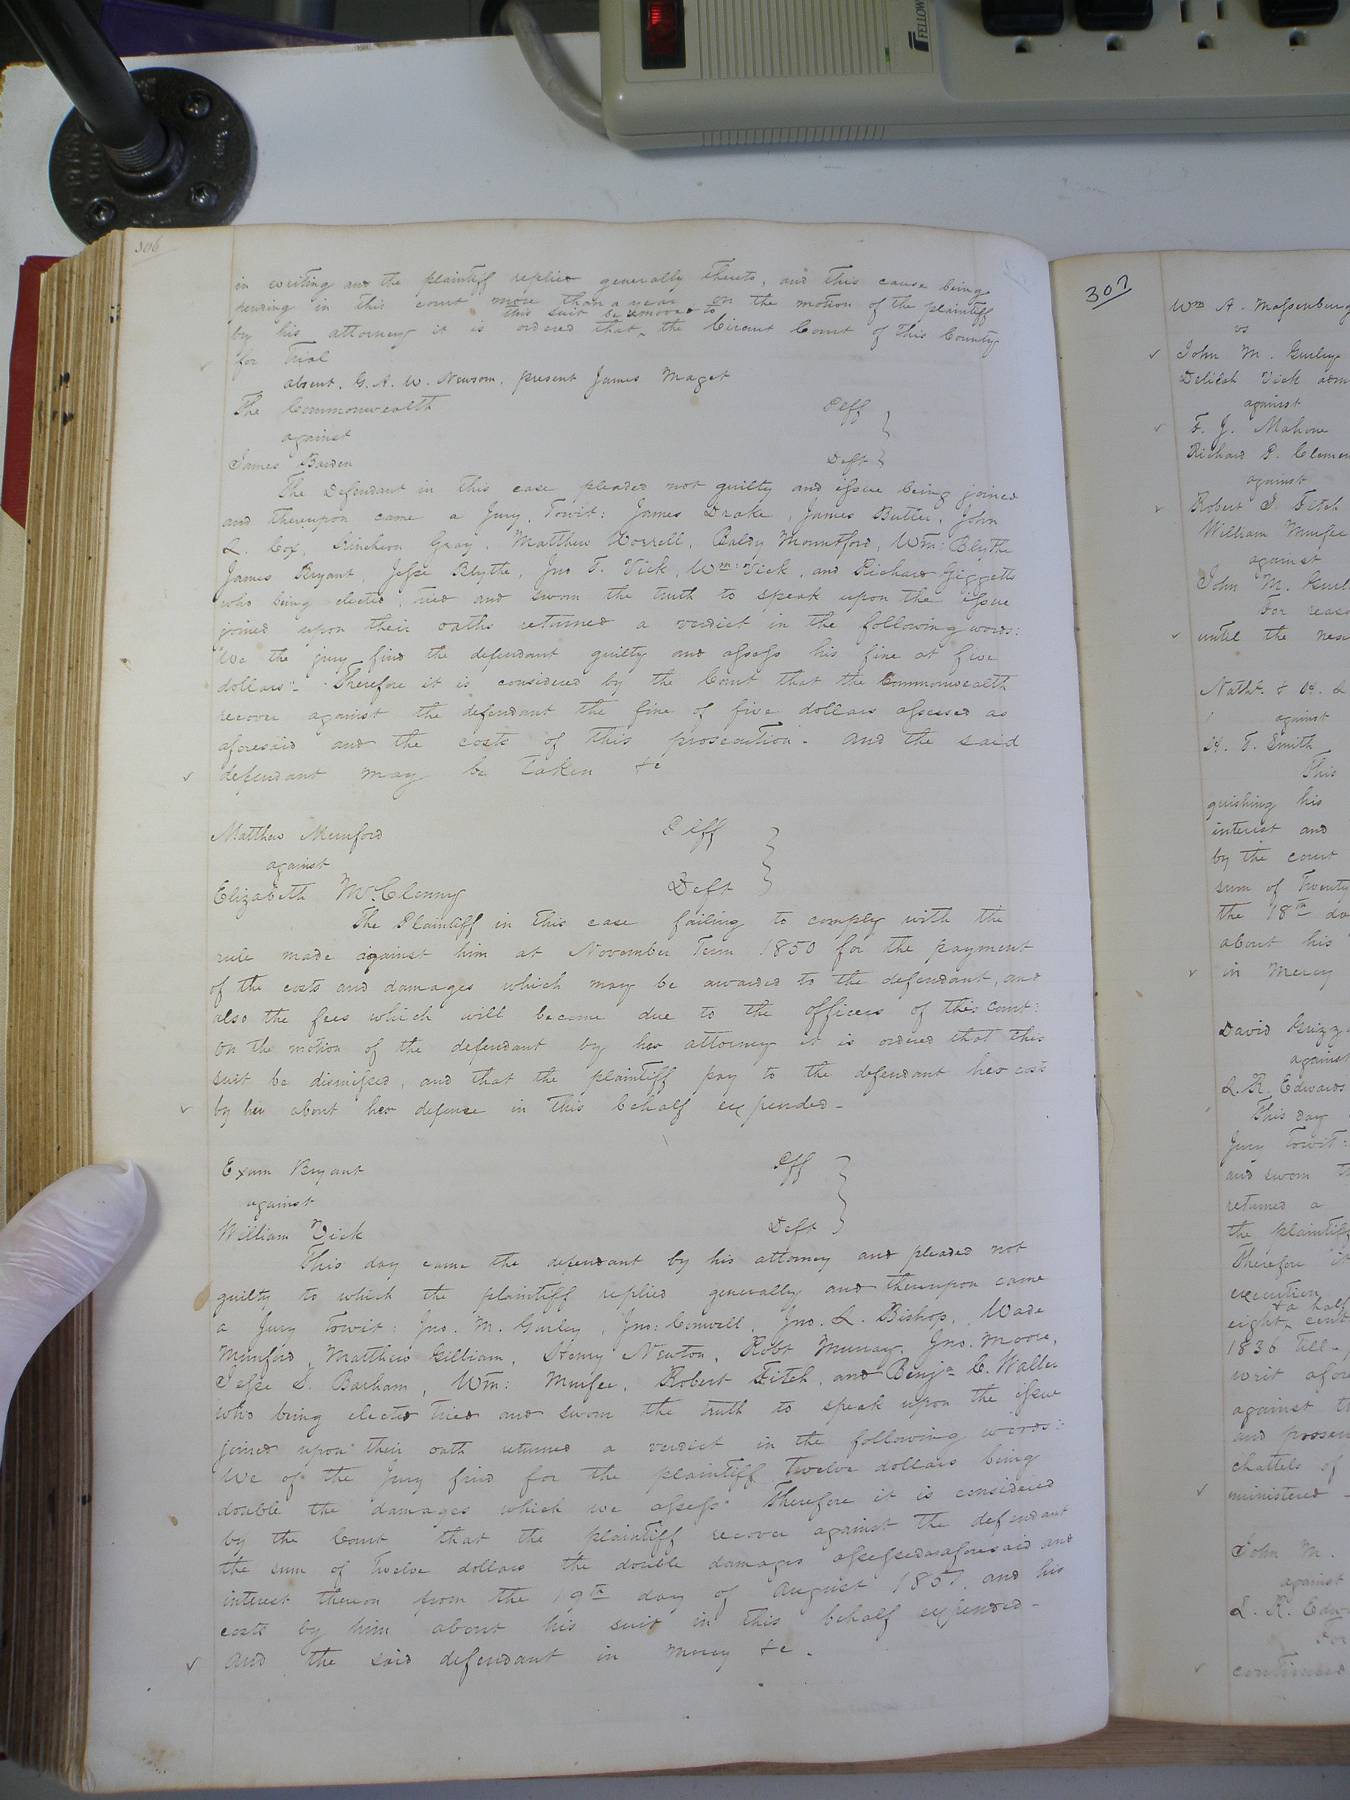 FELLOW
306
in writing and the plaintiff replied generally thereto, and this cause being
pending in this court more than a year on the motion of the plaintiff
this suit be removed to
by his attorney it is ordered that the Circuit Court of this County
for trial
absent. G. A. W. Newsom. present James Maget
The Commonwealth Plff
against
James Barden Deft
The Defendant in this case pleaded not guilty and issue being joined
and thereupon came a Jury, Towit: James Drake, James Butler, John
L. Cox, Kinchen Gray, Matthew Worrell, Baldy Mountford, Wm: Blythe
James Bryant, Jesse Blythe, Jno T. Vick, Wm: Vick, and Richard Giggetts
who being elected, tried and sworn the truth to speak upon the issue
joined upon their oaths returned a verdict in the following words:
We the jury find the defendant guilty and assess his fine at five
dollars". Therefore it is considered by the Court that the Commonwealth
recover against the defendant the fine of five dollars assessed as
aforesaid and the costs of this prosecution. and the said
defendant may be taken &c
Matthew Mumford Plff
against
Elizabeth McClenny Deft
The Plaintiff in this case failing to comply with the
rule made against him at November Term 1850 for the payment
of the costs and damages which may be awarded to the defendant, and
also the fees which will become due to the officers of this court:
On the motion of the defendant by her attorney it is ordered that this
suit be dismissed, and that the plaintiff pay to the defendant her costs
by her about her defense in this behalf expended -
Exum Bryant Plff
against
William Vick Deft
This day came the defendant by his attorney and pleaded not
guilty to which the plaintiff replied generally and thereupon came
a Jury Towit: Jno. M. Gurley, Jno: Conwell, Jno. L. Bishop, Wade
Munford, Matthew Gilliam, Henry Newton, Robt Murray, Jno. Moore,
Jesse S. Barham, Wm: Murfee, Robert Fitch, and Benja. C. Waller
who being elected tried and sworn the truth to speak upon the issue
joined upon their oath returned a verdict in the following words:
We of the Jury find for the plaintiff twelve dollars being
double the damages which we assess" Therefore it is considered
by the Court that the plaintiff recover against the defendant
the sum of twelve dollars the double damages assessed as aforesaid and
interest thereon from the 19th day of August 1851. and his
costs by him about his suit in this behalf expended -
and the said defendant in mercy &c.
307
Wm A. Massenburg
vs
John M. Gurley
Delilah Vick adm
against
F. J. Mahone
Richard P. Clemen
against
Robert S. Fitch
William Murfee
against
John M. Gurl
For reaso
until the nex
Nathl. & H. L
against
H. T. Smith
This
quishing his
interest and
by the court
sum of Twenty
the 18th da
about his
in Mercy
David Grizz
against
L. R. Edwards
This day
Jury towit:
and sworn t
returned a
the plaintiff
Therefore it
execution
& a half
eight cent
1836 till
writ afore
against th
and prosecu
chattels of
ministered
John M.
against
L. R. Edw
For
continued